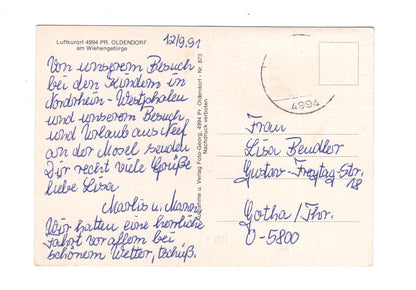 Luftkurort 4994 PR. OLDENDORF
am Wiehengebirge
12/9.91
Von unserem Besuch
bei den Kindern in
Nordrhein-Westphalen
und unserem Besuch
und Urlaub aus Neef
an der Mosel senden
Dir recht viele Grüße
liebe Lisa
Marlis u.
Wir hatten eine herrliche
Fahrt vor allem bei
schönem Wetter, tschüß.
Aufnahme u. Verlag Foto-Georg, 4994 Pr. Oldendorf · Nr. 873
Nachdruck verboten
4994
Frau
Lisa Bendler
Gustav-Freytag-Str.
18
Gotha/Thr.
O-5800